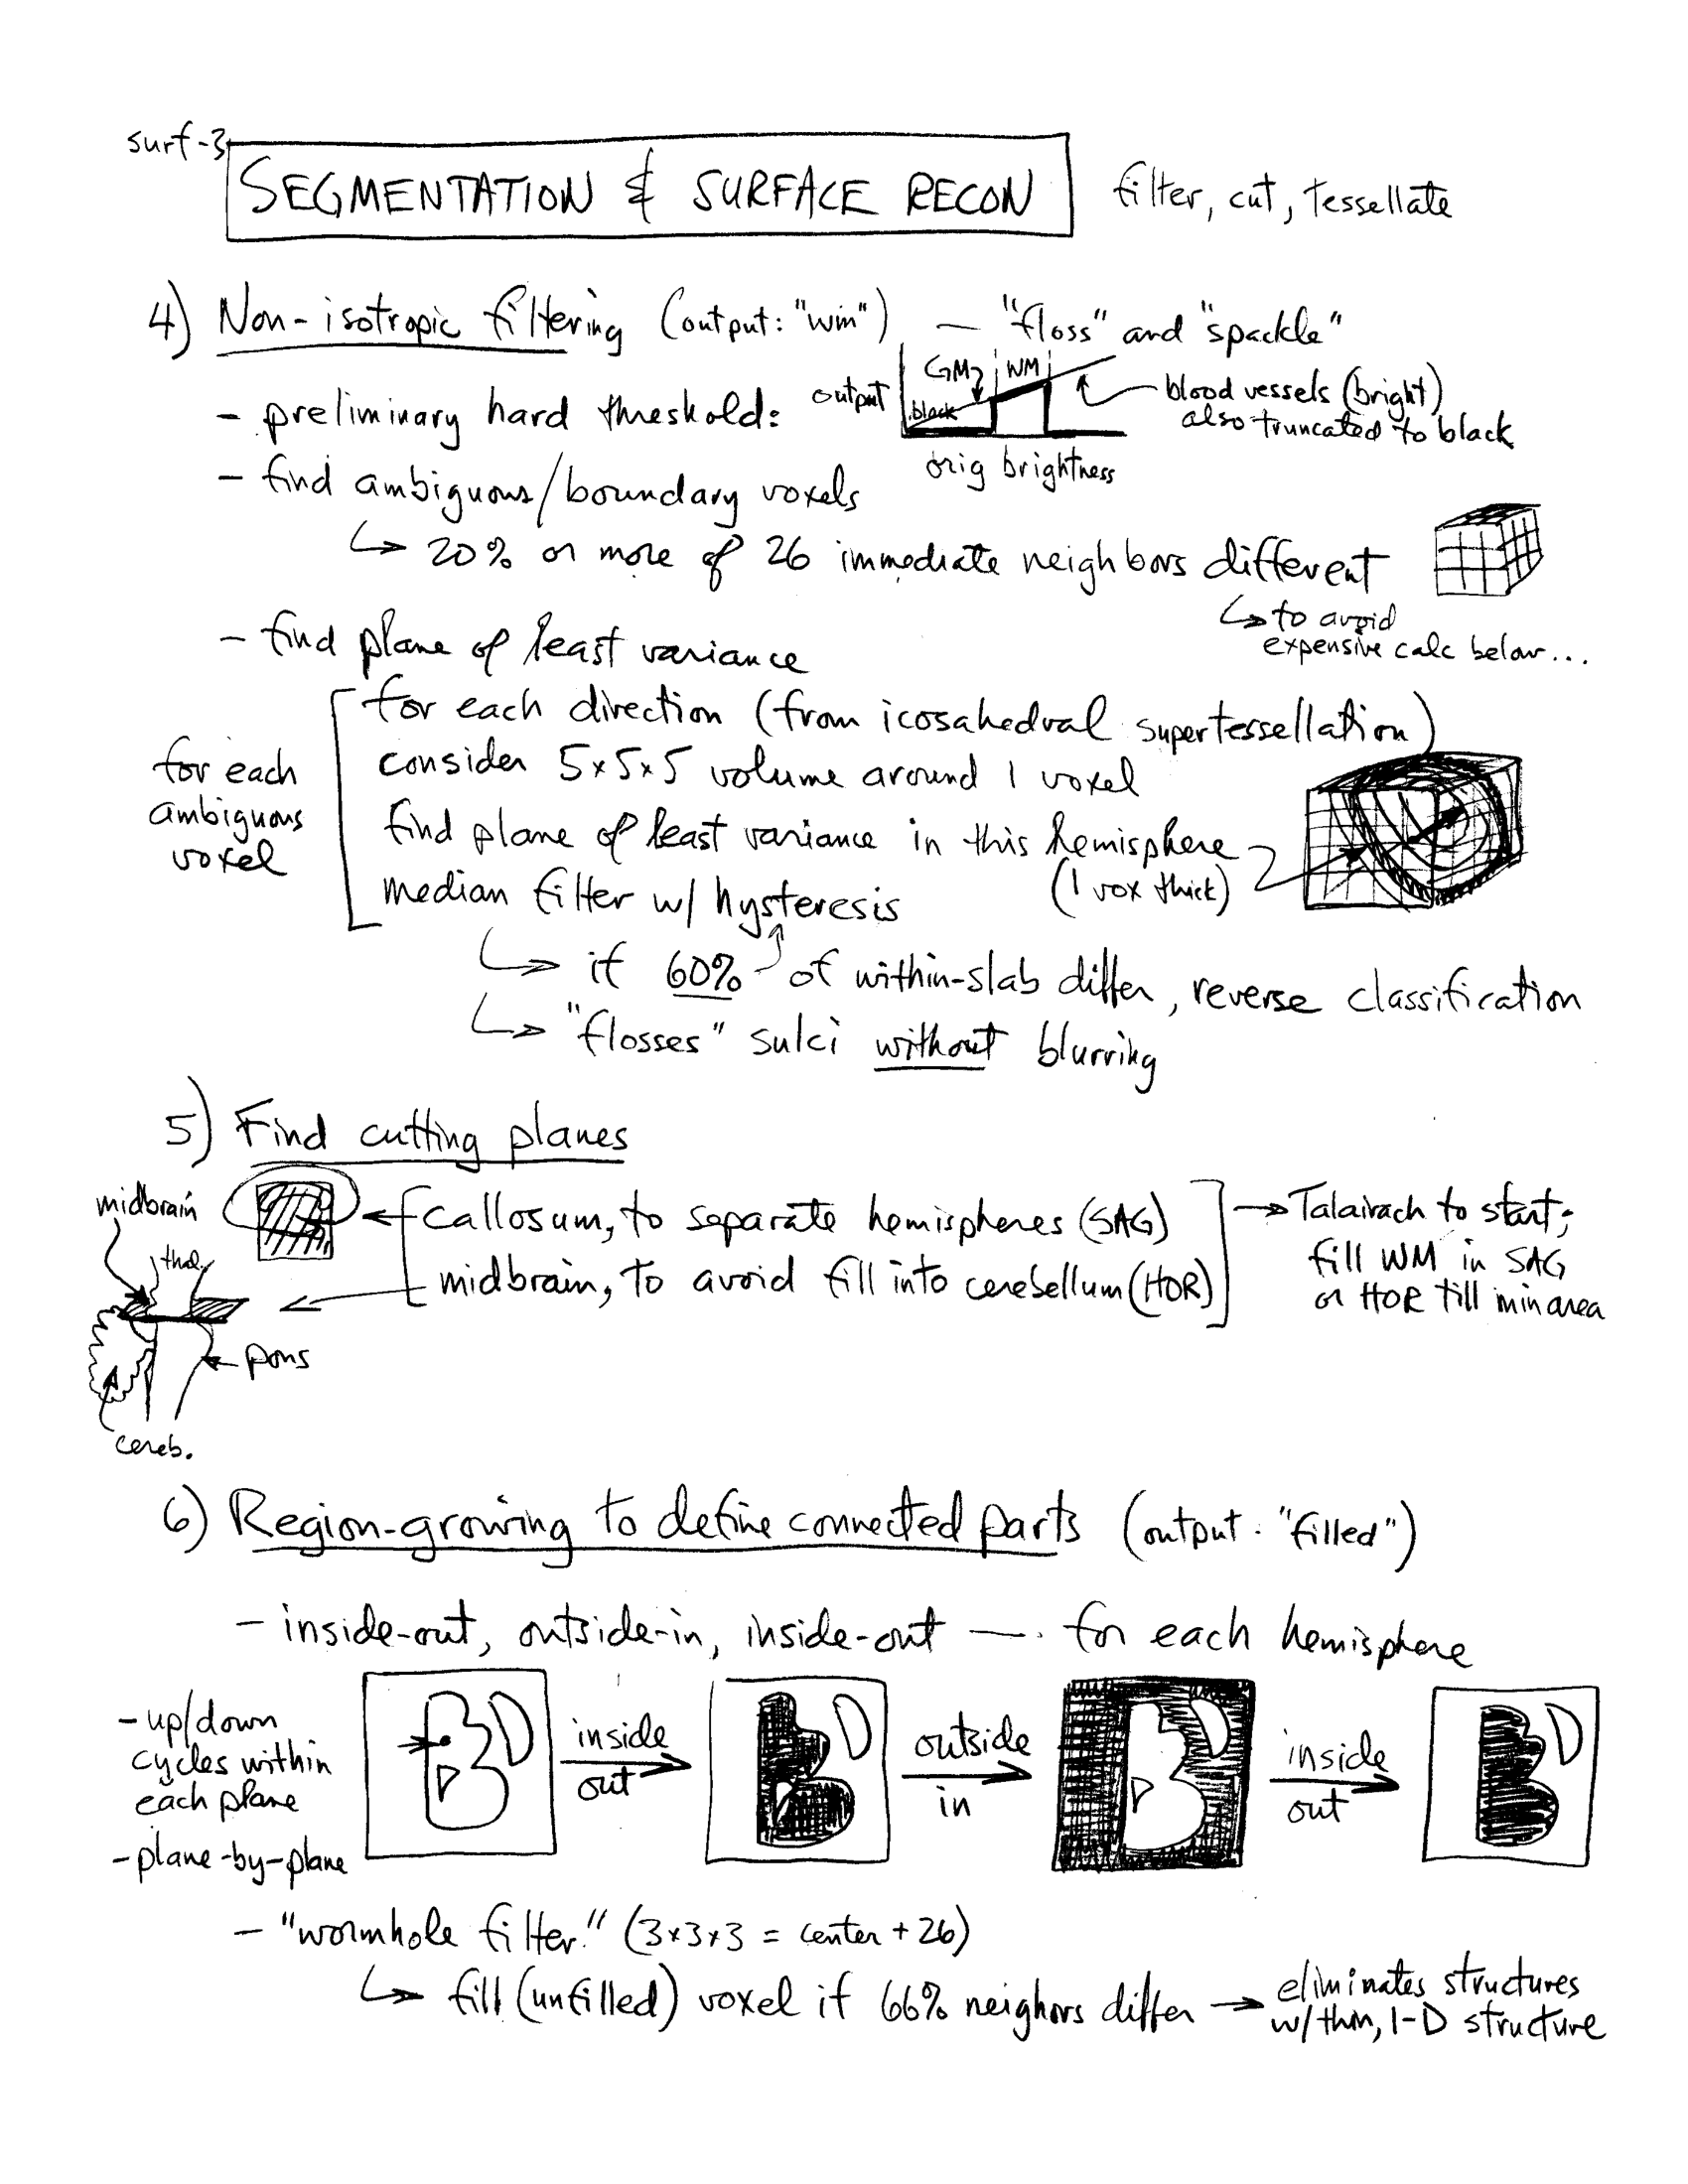 surf-3
SEGMENTATION & SURFACE RECON
filter, cut, tessellate
4) Non-isotropic filtering (output: "wm") — "floss" and "spackle"
- preliminary hard threshold:
output
GM
WM
black
orig brightness
blood vessels (bright)
also truncated to black
- find ambiguous/boundary voxels
↳ 20% or more of 26 immediate neighbors different
↳ to avoid
expensive calc below...
- find plane of least variance
for each
ambiguous
voxel
for each direction (from icosahedral supertessellation)
consider 5×5×5 volume around 1 voxel
find plane of least variance in this hemisphere
(1 vox thick)
median filter w/ hysteresis
↳ if 60% of within-slab differ, reverse classification
↳ "flosses" sulci without blurring
5) Find cutting planes
midbrain
thal.
pons
cereb.
callosum, to separate hemispheres (SAG)
midbrain, to avoid fill into cerebellum (HOR)
→ Talairach to start;
fill WM in SAG
or HOR till min area
6) Region-growing to define connected parts (output: "filled")
- inside-out, outside-in, inside-out — for each hemisphere
- up/down
cycles within
each plane
- plane-by-plane
inside
out
outside
in
inside
out
- "wormhole filter" (3×3×3 = center + 26)
↳ fill (unfilled) voxel if 66% neighors differ → eliminates structures
w/ thin, 1-D structure